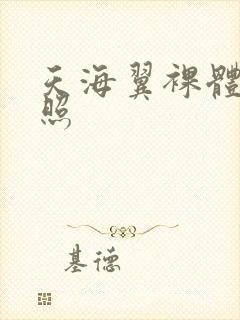 天海翼裸體
照
基德